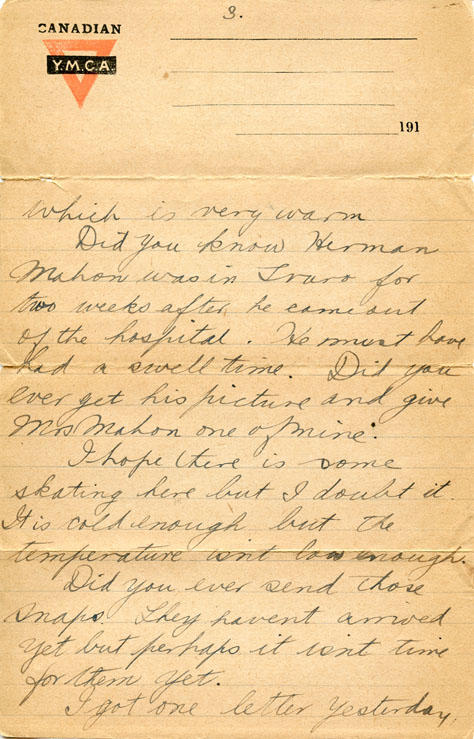 3.
CANADIAN
Y.M.C.A.
191
which is very warm
Did you know Herman
Mahon was in Truro for
two weeks after he came out
of the hospital. He must have
had a swell time. Did you
ever get his picture and give
Mrs Mahon one of mine.
I hope there is some
skating here but I doubt it.
It is cold enough but the
temperature isnt low enough.
Did you ever send those
snaps They havent arrived
yet but perhaps it isnt time
for them yet.
I got one letter yesterday,